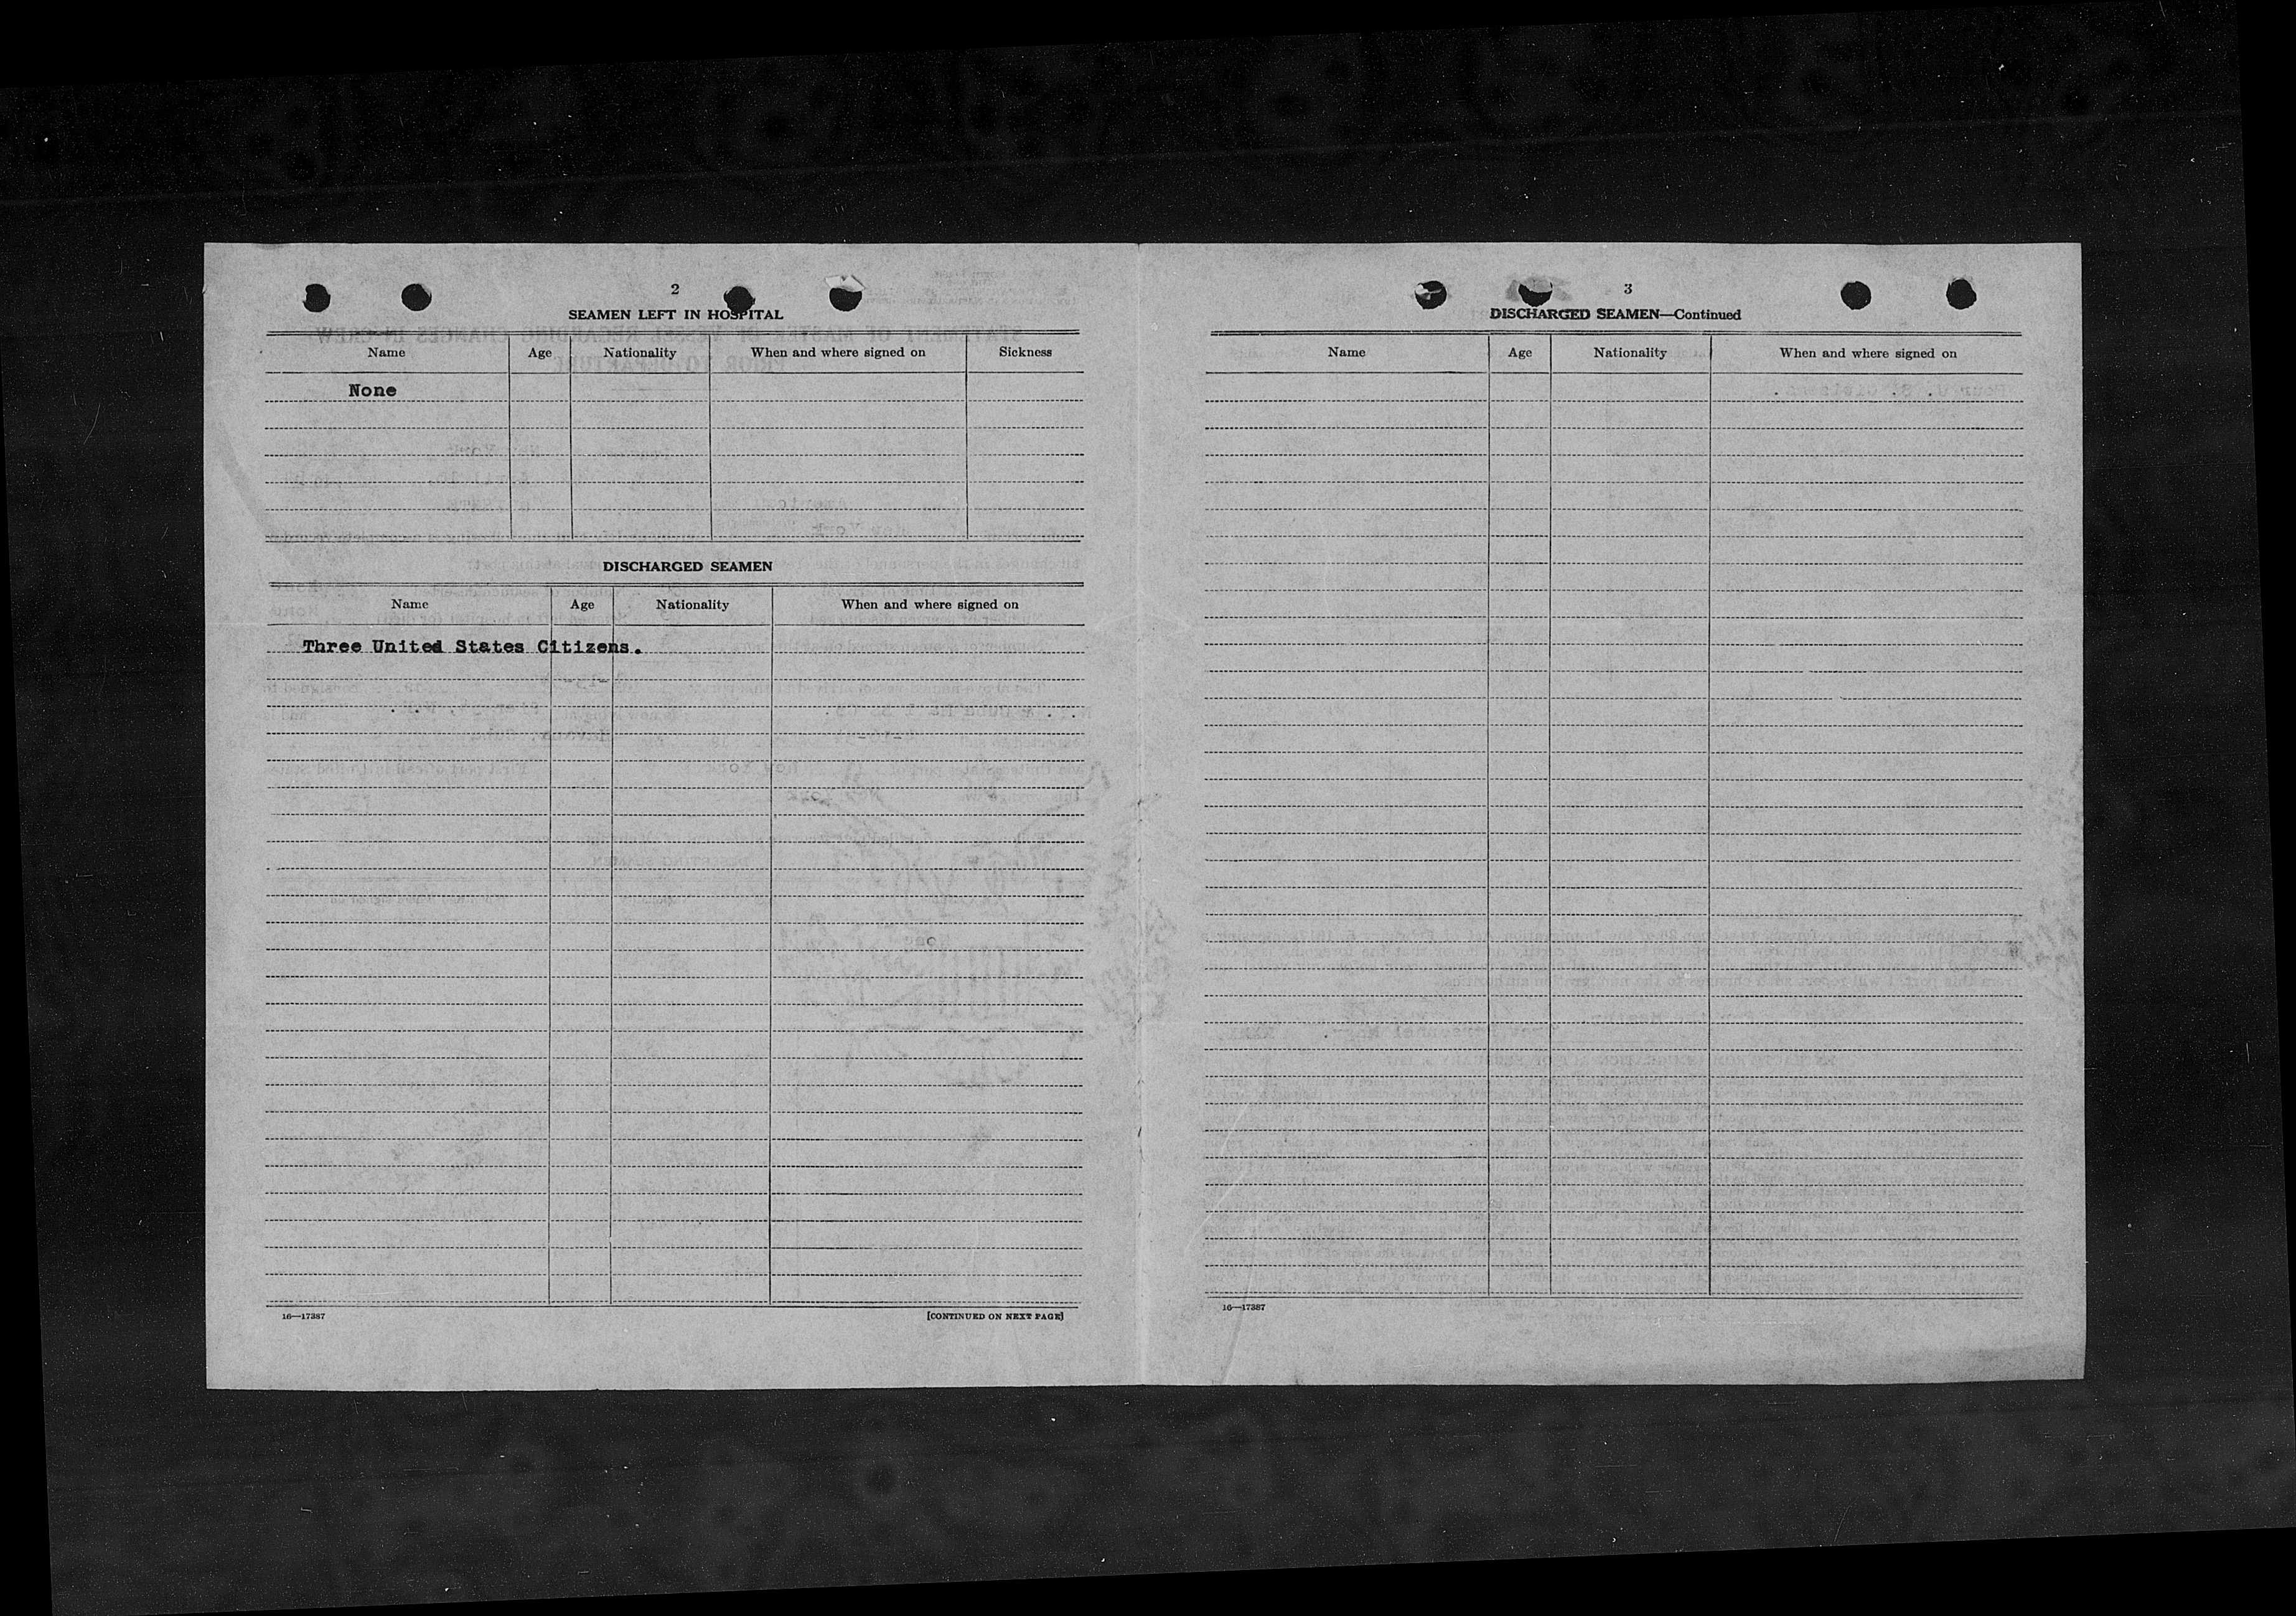 2
SEAMEN LEFT IN HOSPITAL
Name Age Nationality When and where signed on Sickness
None
DISCHARGED SEAMEN
Name Age Nationality When and where signed on
Three United States Citizens.
16—17387 [CONTINUED ON NEXT PAGE]
3
DISCHARGED SEAMEN—Continued
Name Age Nationality When and where signed on
16—17387